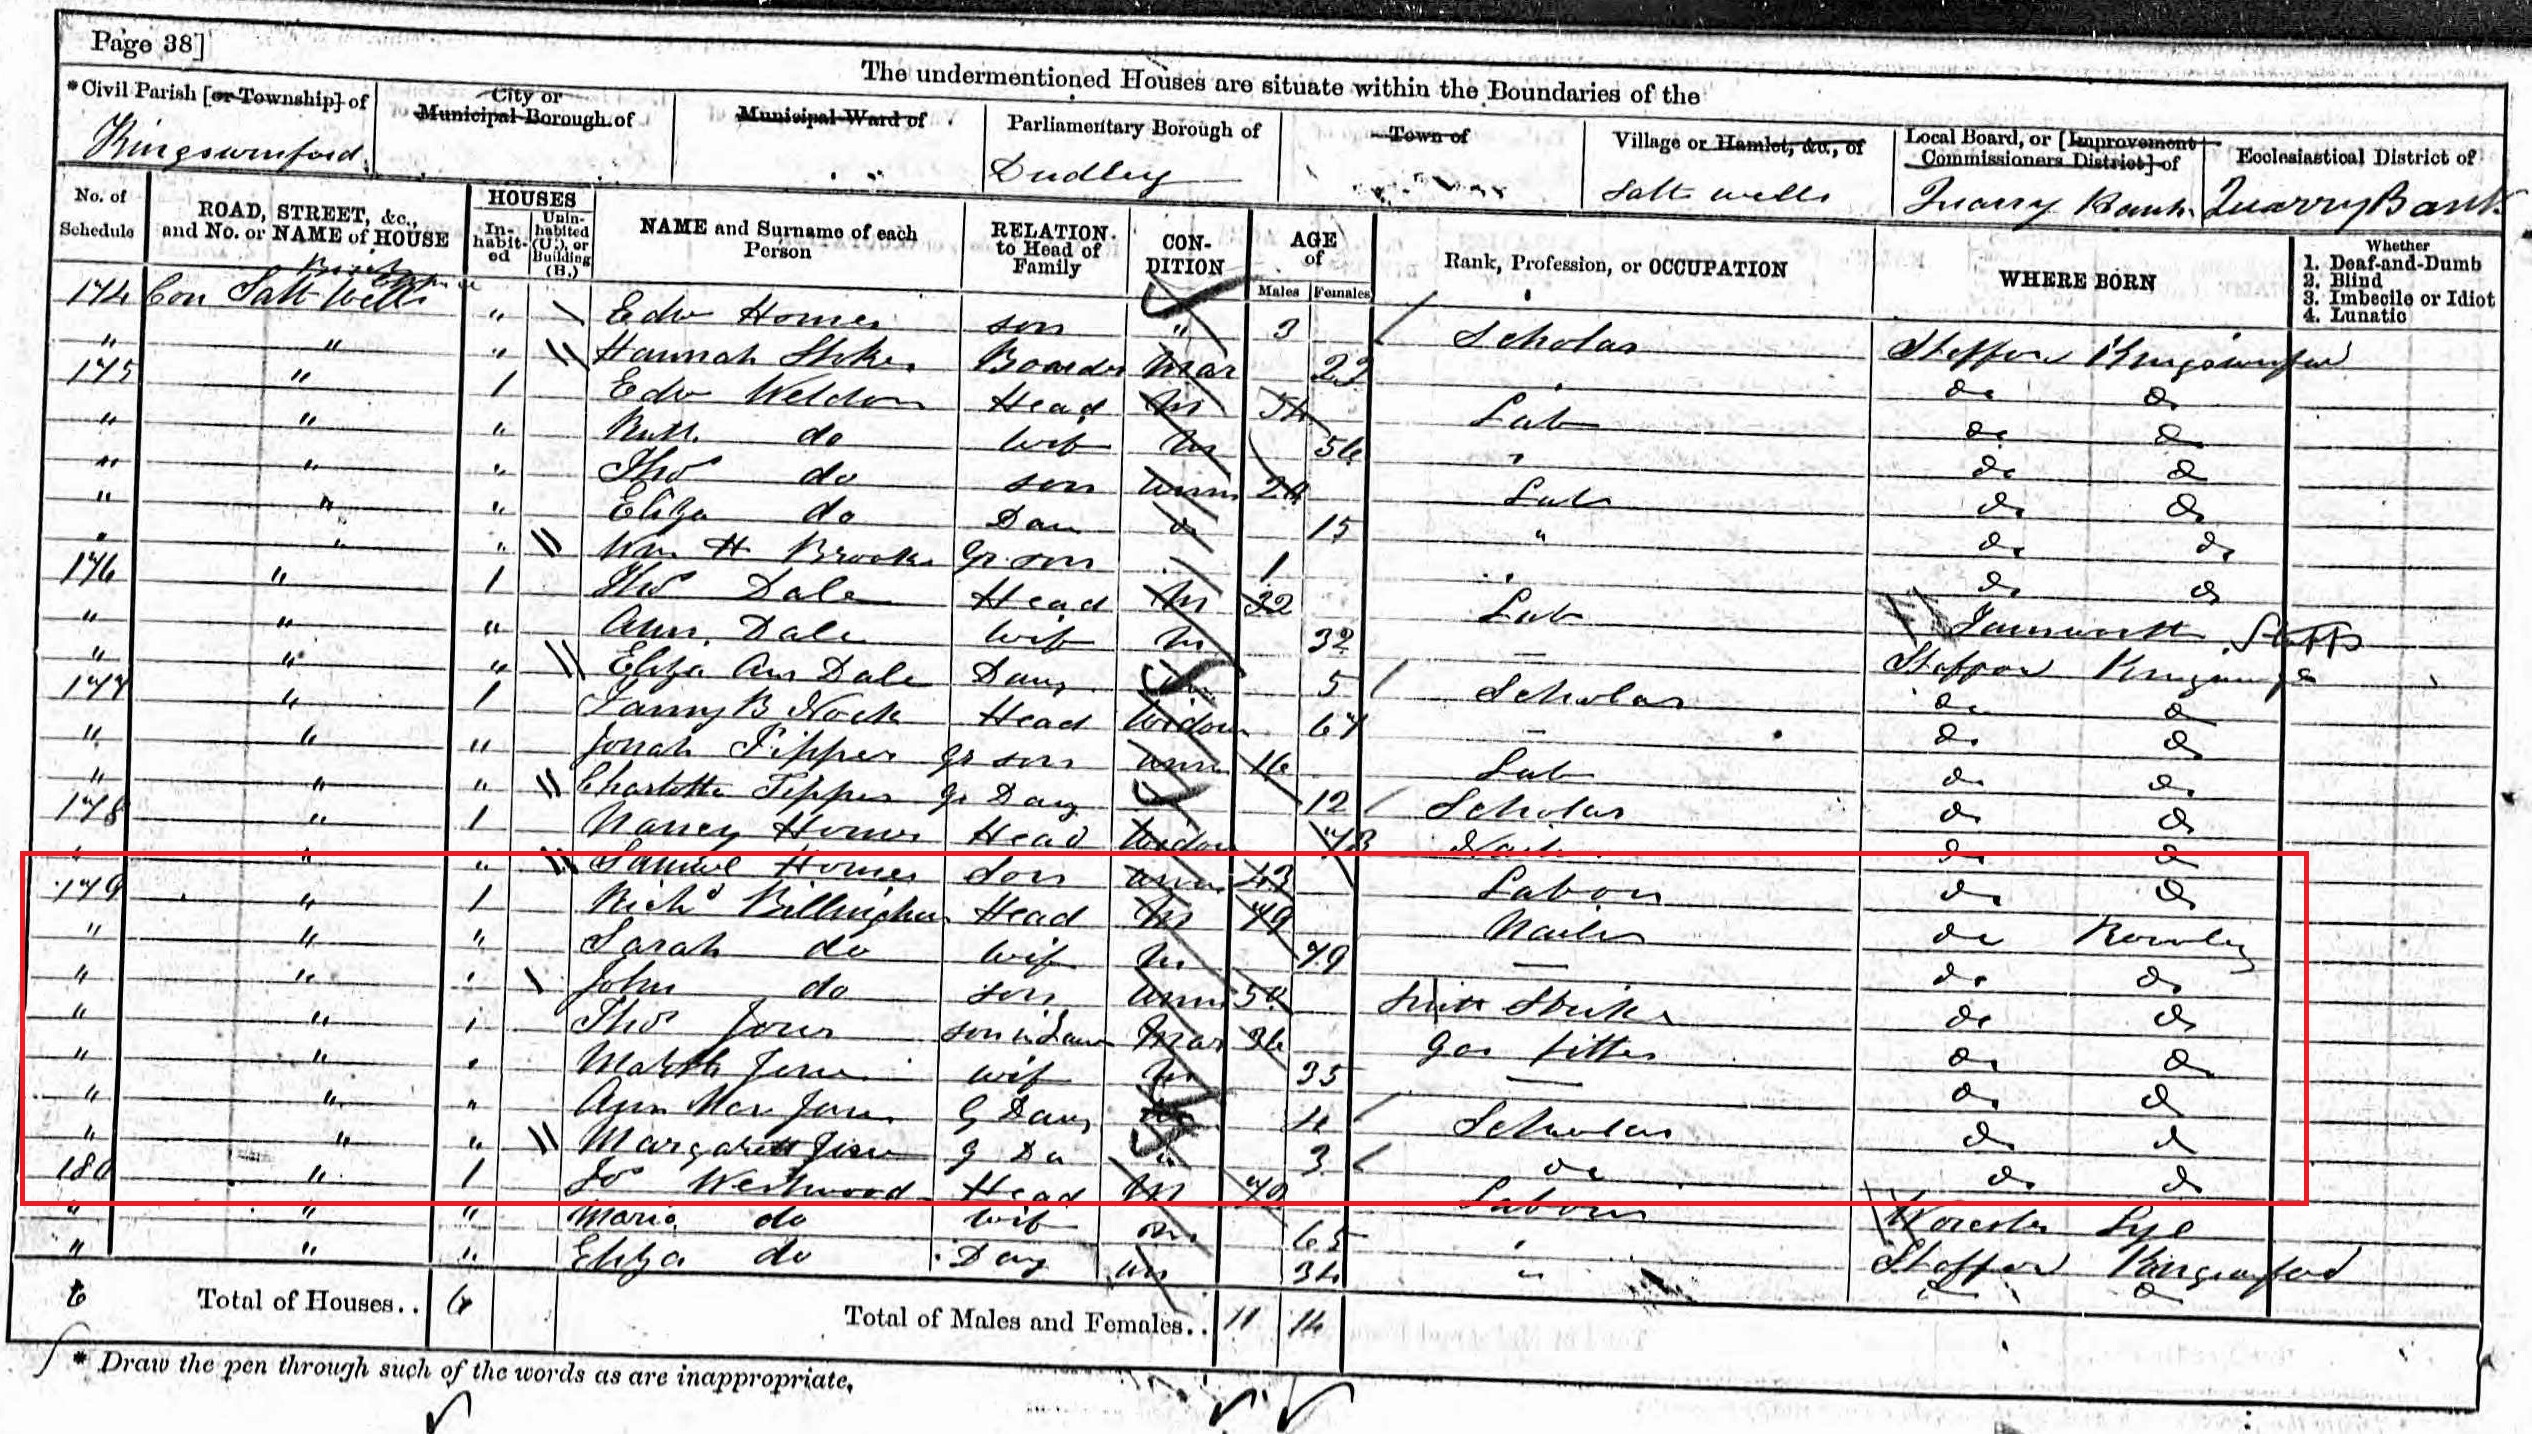 Page 38]
The undermentioned Houses are situate within the Boundaries of the
*Civil Parish [or Township] of City or Municipal Borough of Municipal Ward of Parliamentary Borough of Town of Village or Hamlet, &c., of Local Board, or [Improvement Commissioners District] of Ecclesiastical District of
Kingswinford Dudley Salt wells Quarry Bank Quarry Bank
No. of Schedule ROAD, STREET, &c., and No. or NAME of HOUSE HOUSES Inhabited Uninhabited (U.), or Building (B.) NAME and Surname of each Person RELATION to Head of Family CONDITION AGE of Males Females Rank, Profession, or OCCUPATION WHERE BORN Whether 1. Deaf-and-Dumb 2. Blind 3. Imbecile or Idiot 4. Lunatic
174 Con Salt Wells " Edw Homer son " 3 Scholar Stafford Kingswinford
" " " Hannah Stokes Boarder Mar do do
175 " 1 Edw Weldon Head M 54 Lab do do
" " " Ruth do wife M 56 " do do
" " " Thos do son unm Lab do do
" " " Eliza do Dau do 15 " do do
" " " Wm H Brooks Gr son 1 do do
176 " 1 Thos Dale Head M 32 Lab Staffs
" " " Ann Dale wife M 32 — Stafford
" " " Eliza Ann Dale Daug 5 Scholar do do
177 " 1 Fanny B Nock Head Widow 67 — do do
" " " Jonah Tipper gr son unm 16 Lab do do
" " " Charlotte Tipper gr Daug 12 Scholar do do
178 " 1 Nancy Homer Head Widow 73 do do
" " " Samuel Homer Son unm 43 Labour do do
179 " 1 Richd Billingham Head M 79 Nailer do Rowley
" " " Sarah do wife M 79 — do do
" " " John do son unm 50 Striker do do
" " " Thos Jones son in Law Mar 36 Gas fitter do do
" " " Martha Jones wife M 35 — do do
" " " Ann Mar Jones G Daug 4 Scholar do do
" " " Margarett Jones g Da " 3 do do do
180 " 1 Js Westwood Head M 70 Labour Worcester Lye
" " " Maria do wife M 65 " Stafford Kingswinford
" " " Eliza do Daug un 34 " do do
6 Total of Houses.. 6 Total of Males and Females.. 11 14
* Draw the pen through such of the words as are inappropriate.